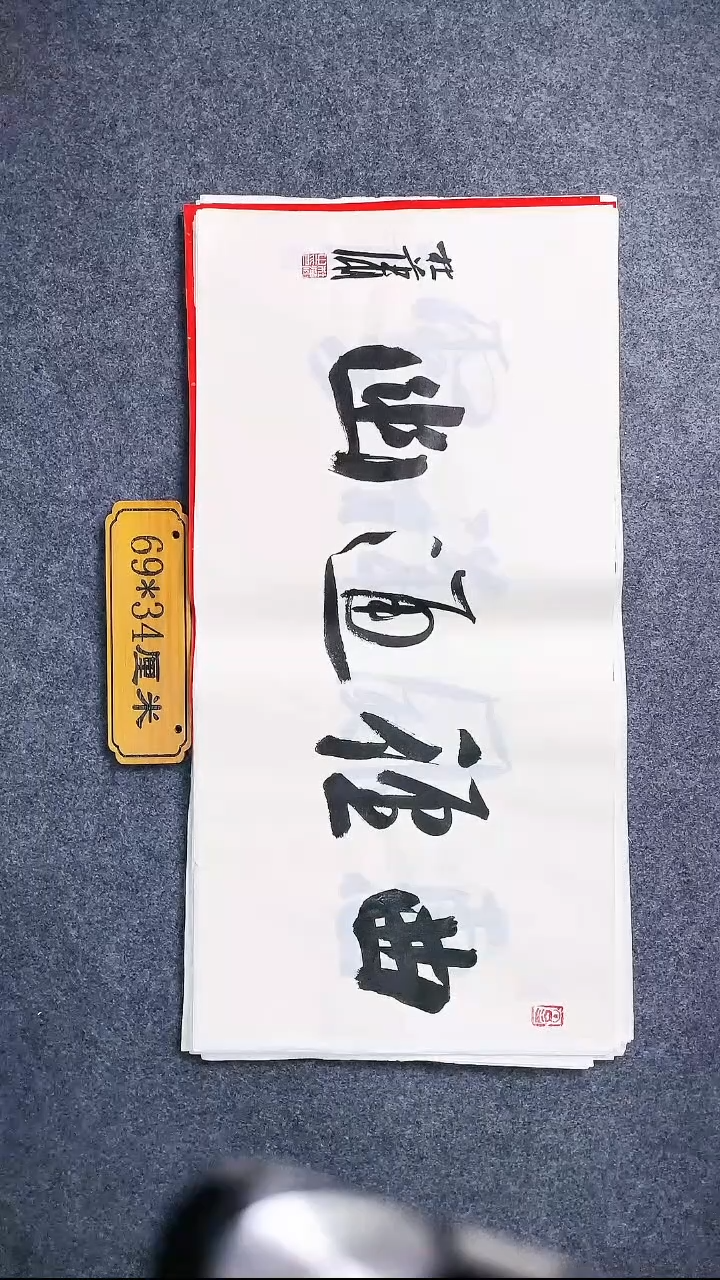 曲径通幽
69*34厘米